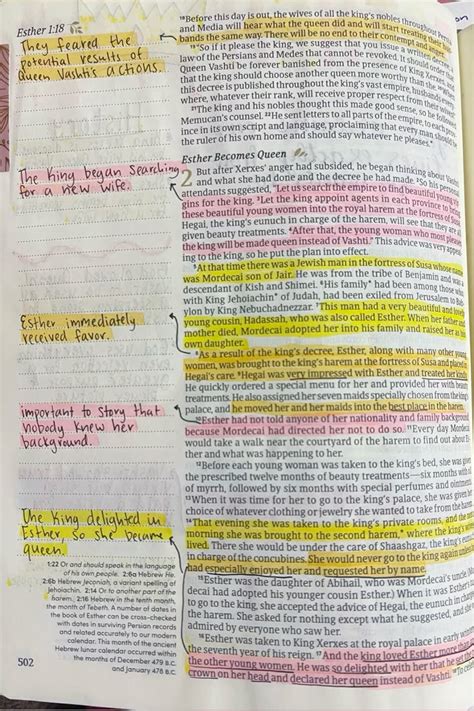 Esther 1:18
They feared the
potential results of
Queen Vashti's actions
The King began searching
for a new wife.
Esther immediately
received favor.
important to story that
nobody knew her
background.
The King delighted in
Esther so she became
queen.
1:22 Or and should speak in the language
of his own people. 2:6a Hebrew He.
2:6b Hebrew Jeconiah, a variant spelling of
Jehoiachin. 2:14 Or to another part of the
harem. 2:16 Hebrew in the tenth month,
the month of Tebeth. A number of dates in
the book of Esther can be cross-checked
with dates in surviving Persian records
and related accurately to our modern
calendar. This month of the ancient
Hebrew lunar calendar occurred within
the months of December 479 B.C.
and January 478 B.C.
502
18Before this day is out, the wives of all the king's nobles throughout Persia
and Media will hear what the queen did and will start treating their hus-
bands the same way. There will be no end to their contempt and anger.
19"So if it please the king, we suggest that you issue a written decree, a
law of the Persians and Medes that cannot be revoked. It should order that
Queen Vashti be forever banished from the presence of King Xerxes, and
that the king should choose another queen more worthy than she. 20When
this decree is published throughout the king's vast empire, husbands every-
where, whatever their rank, will receive proper respect from their wives!"
21The king and his nobles thought this made good sense, so he followed
Memucan's counsel. 22He sent letters to all parts of the empire, to each prov-
ince in its own script and language, proclaiming that every man should be
the ruler of his own home and should say whatever he pleases.*
Esther Becomes Queen
2 But after Xerxes' anger had subsided, he began thinking about Vashti
and what she had done and the decree he had made. 2So his personal
attendants suggested, "Let us search the empire to find beautiful young vir-
gins for the king. 3Let the king appoint agents in each province to bring
these beautiful young women into the royal harem at the fortress of Susa.
Hegai, the king's eunuch in charge of the harem, will see that they are all
given beauty treatments. 4After that, the young woman who most pleases
the king will be made queen instead of Vashti." This advice was very appeal-
ing to the king, so he put the plan into effect.
5At that time there was a Jewish man in the fortress of Susa whose name
was Mordecai son of Jair. He was from the tribe of Benjamin and was a
descendant of Kish and Shimei. 6His family* had been among those who,
with King Jehoiachin* of Judah, had been exiled from Jerusalem to Baby-
lon by King Nebuchadnezzar. 7This man had a very beautiful and lovely
young cousin, Hadassah, who was also called Esther. When her father and
mother died, Mordecai adopted her into his family and raised her as his
own daughter.
8As a result of the king's decree, Esther, along with many other young
women, was brought to the king's harem at the fortress of Susa and placed in
Hegai's care. 9Hegai was very impressed with Esther and treated her kindly.
He quickly ordered a special menu for her and provided her with beauty
treatments. He also assigned her seven maids specially chosen from the king's
palace, and he moved her and her maids into the best place in the harem.
10Esther had not told anyone of her nationality and family background,
because Mordecai had directed her not to do so. 11Every day Mordecai
would take a walk near the courtyard of the harem to find out about Es-
ther and what was happening to her.
12Before each young woman was taken to the king's bed, she was given
the prescribed twelve months of beauty treatments—six months with oil
of myrrh, followed by six months with special perfumes and ointments.
13When it was time for her to go to the king's palace, she was given her
choice of whatever clothing or jewelry she wanted to take from the harem.
14That evening she was taken to the king's private rooms, and the next
morning she was brought to the second harem,* where the king's wives
lived. There she would be under the care of Shaashgaz, the king's eunuch
in charge of the concubines. She would never go to the king again unless he
had especially enjoyed her and requested her by name.
15Esther was the daughter of Abihail, who was Mordecai's uncle. (Mor-
decai had adopted his younger cousin Esther.) When it was Esther's turn
to go to the king, she accepted the advice of Hegai, the eunuch in charge
of the harem. She asked for nothing except what he suggested, and she was
admired by everyone who saw her.
16Esther was taken to King Xerxes at the royal palace in early winter* of
the seventh year of his reign. 17And the king loved Esther more than any of
the other young women. He was so delighted with her that he set the royal
crown on her head and declared her queen instead of Vashti. 18To cele-